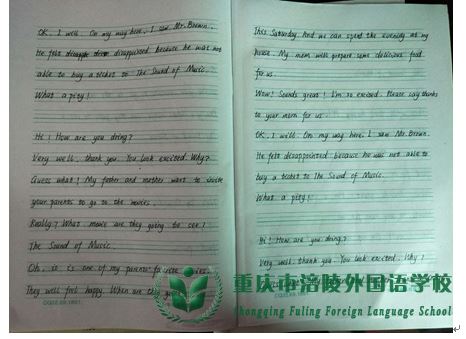 OK, I will. On my way here, I saw Mr. Brown.
He felt disappointed because he was not
able to buy a ticket to The Sound of Music.
What a pity!
Hi! How are you doing?
Very well, thank you. You look excited. Why?
Guess what! My father and mother want to invite
your parents to go to the movies.
Really? What movie are they going to see?
The Sound of Music.
Oh, so is one of my parents' favorite movies.
They well feel happy. When are they
This Saturday. And we can spend the evening at my
house. My mom will prepare some delicious food
for us.
Wow! Sounds great! I'm so excited. Please say thanks
to your mom for us.
OK, I will. On my way here, I saw Mr. Brown.
He felt desappointed because he was not able to
buy a ticket to The Sound of Music.
What a pity!
Hi! How are you doing?
Very well thank you. You look excited. Why?
重庆市涪陵外国语学校
Chongqing Fuling Foreign Language School